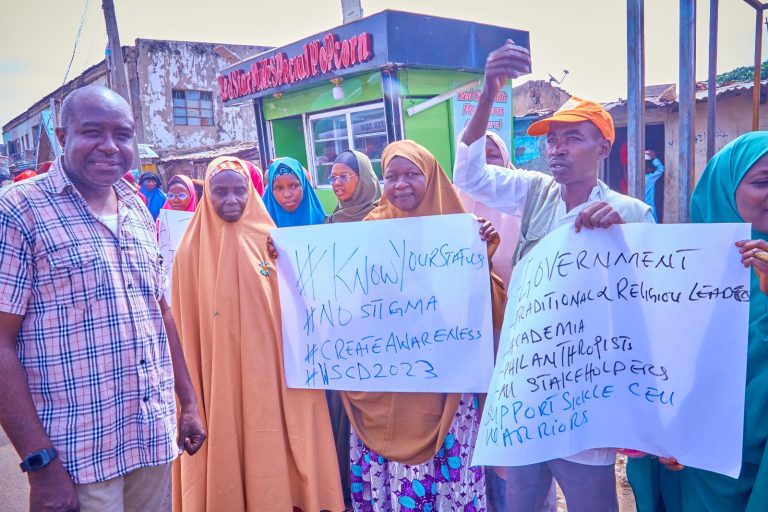 Red Star Multi Special Popcorn
#KNOW YOUR STATUS
#NO STIGMA
#CREATE AWARENESS
#WSCD2023
GOVERNMENT
-TRADITIONAL & RELIGION LEADE
-ACADEMIA
-PHILANTHROPISTS
-ALL STAKEHOLDERS
SUPPORT SICKLE CELL
WARRIORS